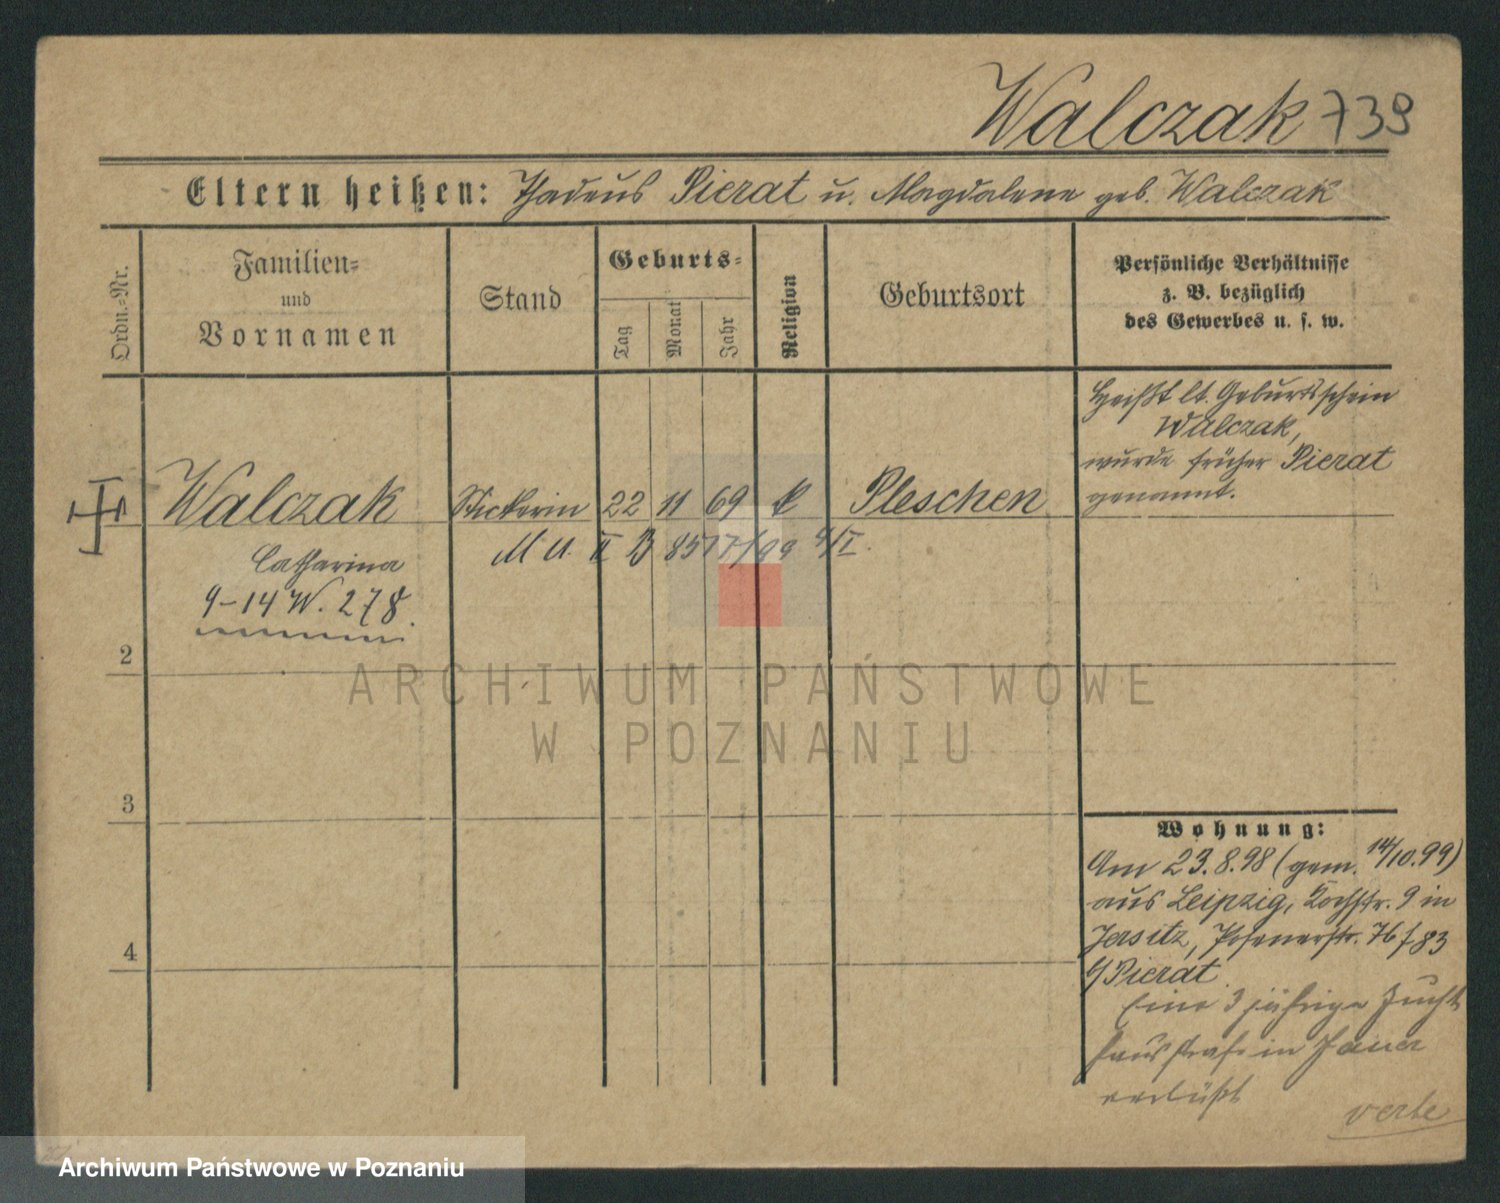 Walczak 739
Eltern heißen: Thadeus Pierat u. Magdalene geb. Walczak
Ordn.-Nr.
Familien-
und
Vornamen
Stand
Geburts-
Tag
Monat
Jahr
Religion
Geburtsort
Persönliche Verhältnisse
z. B. bezüglich
des Gewerbes u. s. w.
Heißt lt. Geburtsschein
Walczak,
wurde früher Pierat
genannt.
Walczak Stickerin 22 11 69 k Pleschen
Catharina
M U. II B 85 17/99 4/I.
9-14 W. 278.
2
3
4
Wohnung:
Am 23.8.98 (gem. 14/10.99)
aus Leipzig, Kochstr. 9 in
Jersitz, Posenerstr. 76 f 83
b/Pierat.
Eine 3 jährige Zucht
hausstrafe in Jauer
verbüßt
verte
ARCHIWUM PAŃSTWOWE
W POZNANIU
Archiwum Państwowe w Poznaniu